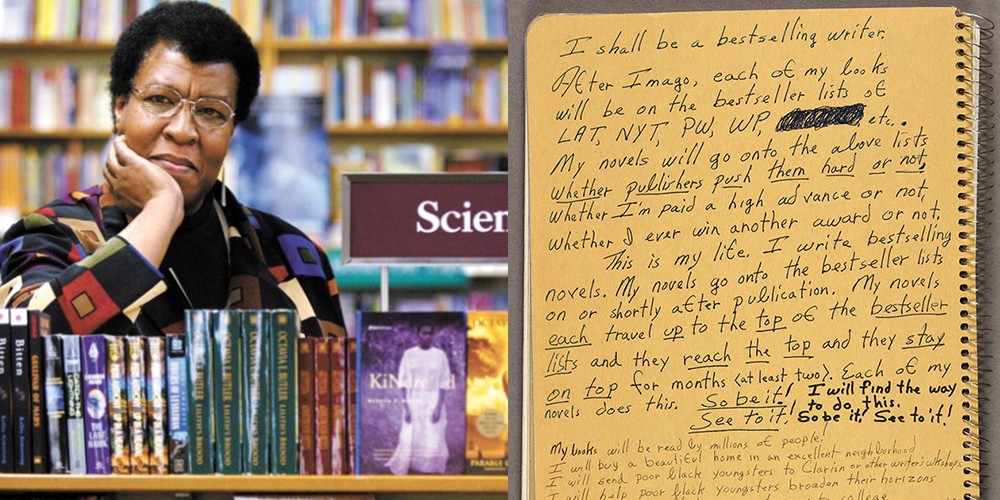 Scien
Bitten
Bitten
KiNdred
I shall be a bestselling writer.
After Imago, each of my books
will be on the bestseller lists of
LAT, NYT, PW, WP, etc..
My novels will go onto the above lists
whether publishers push them hard or not,
whether I'm paid a high advance or not,
whether I ever win another award or not.
This is my life. I write bestselling
novels. My novels go onto the bestseller lists
on or shortly after publication. My novels
each travel up to the top of the bestseller
lists and they reach the top and they stay
on top for months (at least two). Each of my
novels does this. So be it! I will find the way
See to it! to do this.
So be it! See to it!
My books will be read by millions of people!
I will buy a beautiful home in an excellent neighborhood
I will send poor black youngsters to Clarion or other writer's workshops
I will help poor black youngsters broaden their horizons
to college